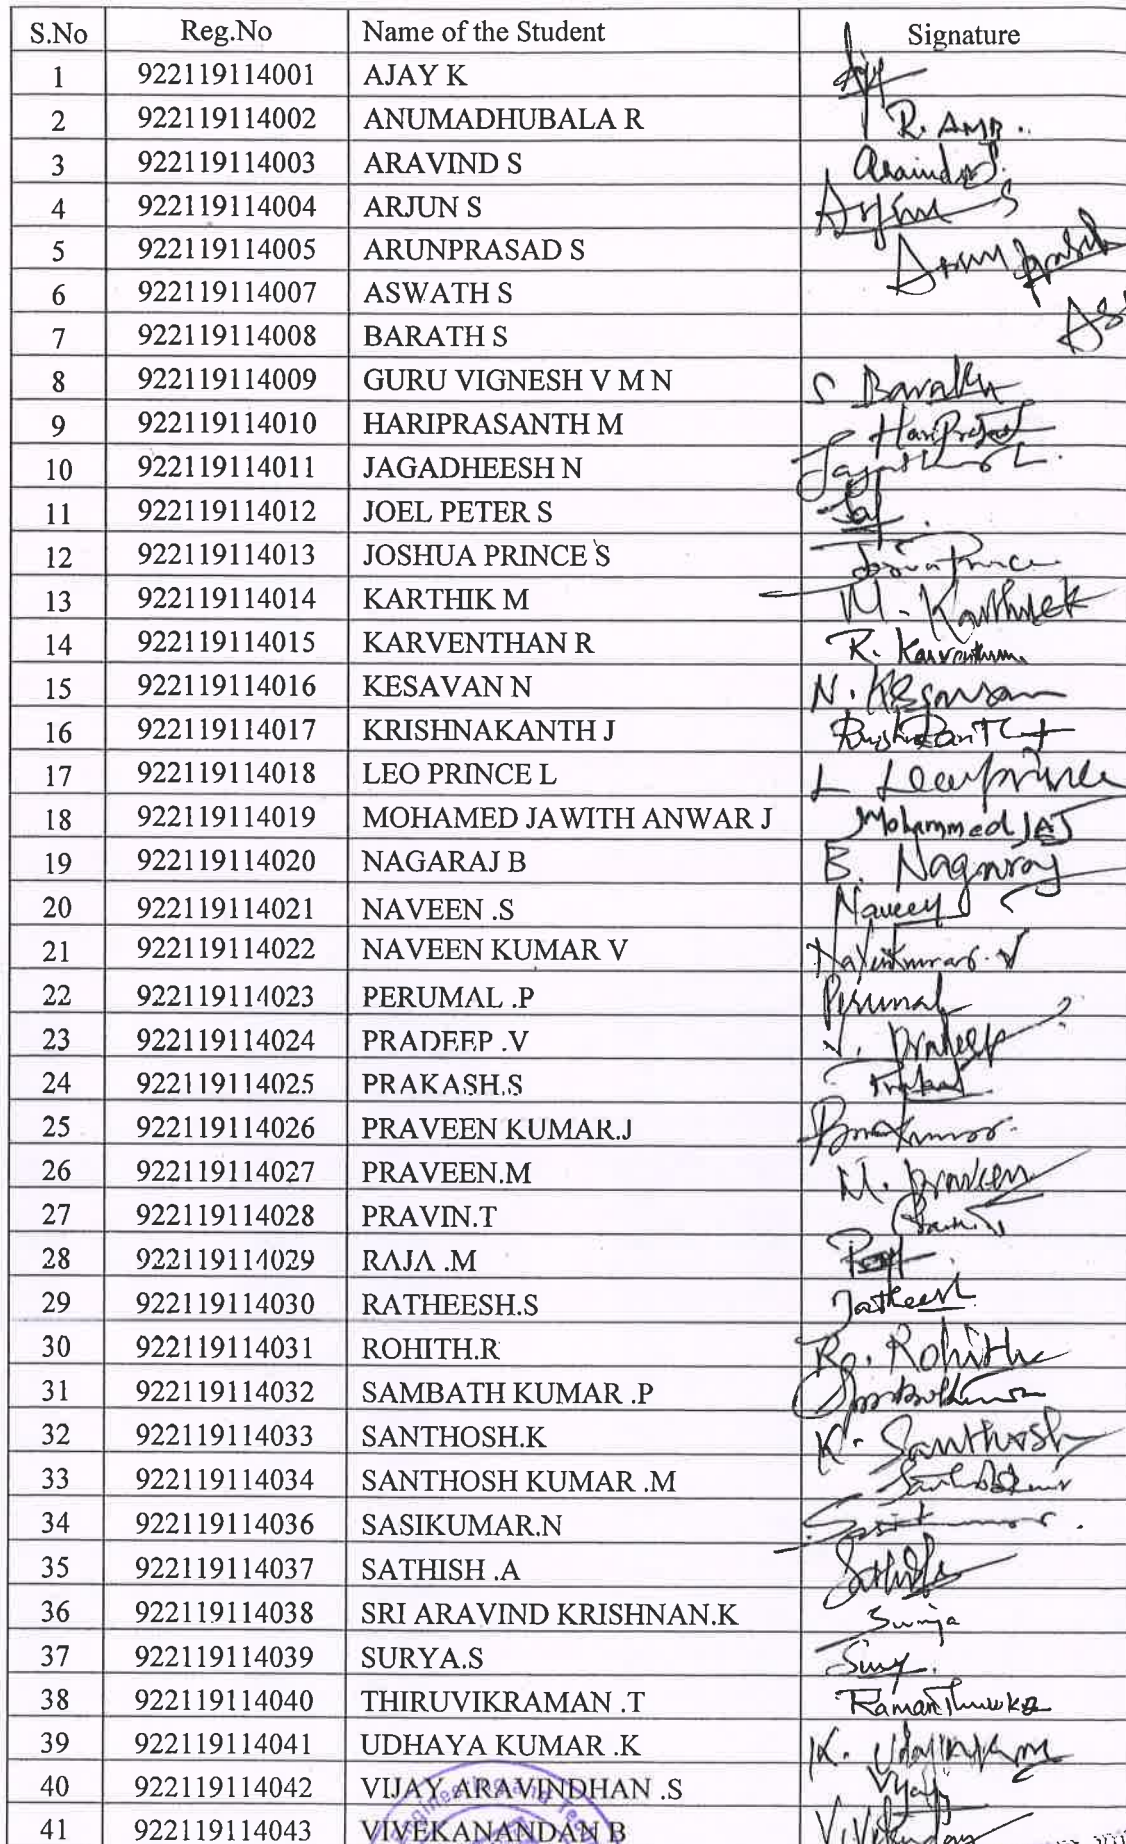 S.No Reg.No Name of the Student Signature
1 922119114001 AJAY K Ajy
2 922119114002 ANUMADHUBALA R R. AMB.
3 922119114003 ARAVIND S
4 922119114004 ARJUN S Arjun S
5 922119114005 ARUNPRASAD S
6 922119114007 ASWATH S
7 922119114008 BARATH S
8 922119114009 GURU VIGNESH V M N S Barath
9 922119114010 HARIPRASANTH M
10 922119114011 JAGADHEESH N
11 922119114012 JOEL PETER S
12 922119114013 JOSHUA PRINCE S
13 922119114014 KARTHIK M M. Karthick
14 922119114015 KARVENTHAN R R. Karventhan
15 922119114016 KESAVAN N N. Kesavan
16 922119114017 KRISHNAKANTH J
17 922119114018 LEO PRINCE L L Leo prince
18 922119114019 MOHAMED JAWITH ANWAR J Mohammed JAJ
19 922119114020 NAGARAJ B B. Nagaraj
20 922119114021 NAVEEN .S Naveen S
21 922119114022 NAVEEN KUMAR V
22 922119114023 PERUMAL .P Perumal
23 922119114024 PRADEEP .V V. Pradeep
24 922119114025 PRAKASH.S
25 922119114026 PRAVEEN KUMAR.J
26 922119114027 PRAVEEN.M M. Praveen
27 922119114028 PRAVIN.T
28 922119114029 RAJA .M
29 922119114030 RATHEESH.S Ratheesh
30 922119114031 ROHITH.R Ro. Rohith
31 922119114032 SAMBATH KUMAR .P
32 922119114033 SANTHOSH.K K. Santhosh
33 922119114034 SANTHOSH KUMAR .M
34 922119114036 SASIKUMAR.N
35 922119114037 SATHISH .A
36 922119114038 SRI ARAVIND KRISHNAN.K
37 922119114039 SURYA.S
38 922119114040 THIRUVIKRAMAN .T
39 922119114041 UDHAYA KUMAR .K
40 922119114042 VIJAY ARAVINDHAN .S Vijay
41 922119114043 VIVEKANANDAN B